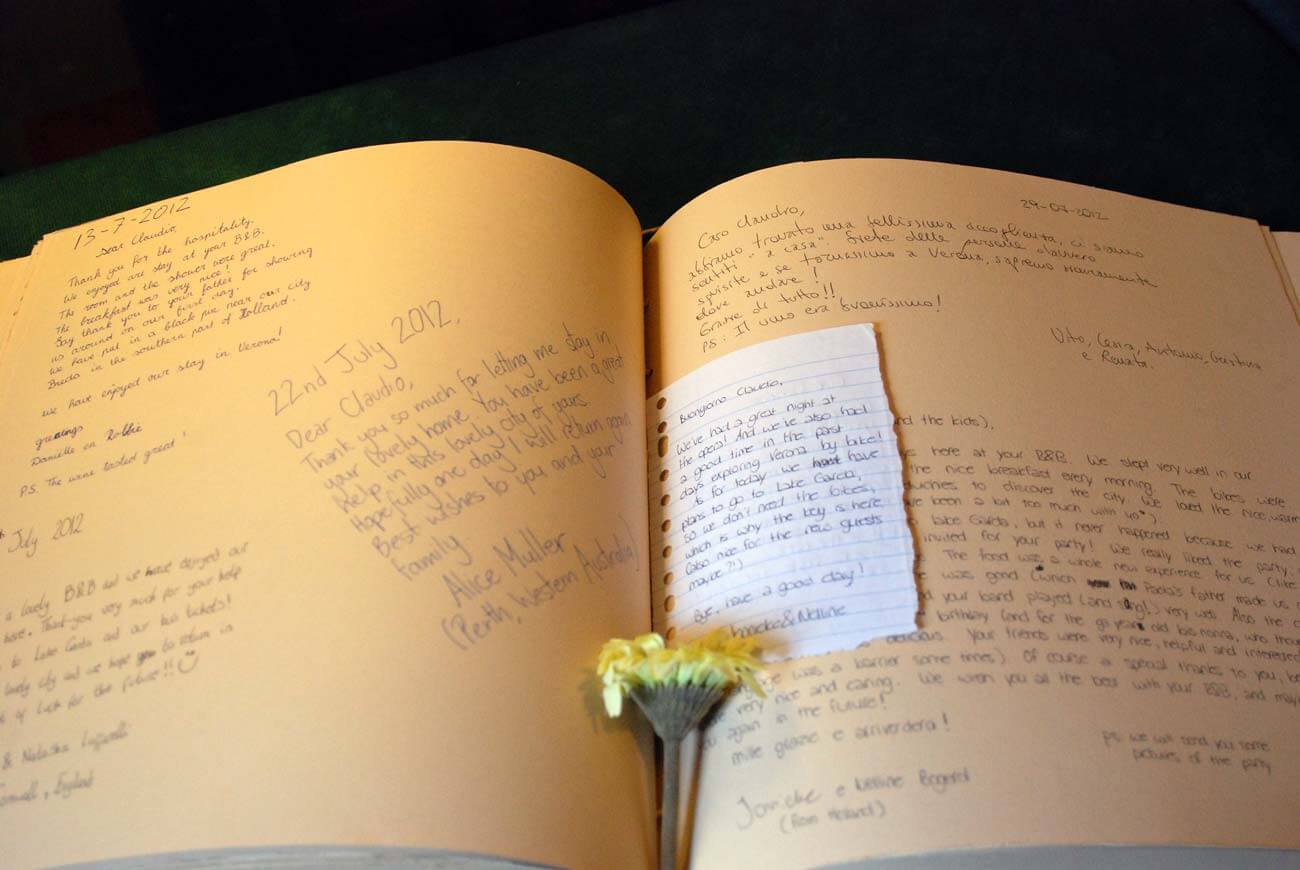 13-7-2012
Dear Claudio,
Thank you for the hospitality.
We enjoyed are stay at your B&B.
The room and the shower were great.
The breakfast was very nice!
Say thank you to your father for showing
us around on our first day.
We have put in a black pin near our city
Breda in the southern part of Holland.
We have enjoyed our stay in Verona!
greetings
Danielle en Robbie
P.S. The wine tasted great!
22nd July 2012,
Dear Claudio,
Thank you so much for letting me stay in
your lovely home. You have been a great
help in this lovely city of yours.
Hopefully one day I will return again
Best wishes to you and your
family
Alice Muller
(Perth, Western Australia)
July 2012
a lovely B&B and we have enjoyed our
here. Thank you very much for your help
to Lake Garda and our bus tickets!
lovely city and we hope to return in
of luck for the future!!
& Natasha
Cornwall, England
29-07-2012
Caro Claudio,
abbiamo trovato una bellissima accoglienza, ci siamo
sentiti "a casa". Siete delle persone davvero
squisite e se torneremo a Verona, sapremo nuovamente
dove andare!
Grazie di tutto!!
PS: Il vino era buonissimo!
Vito, Antonio,
e Renata.
Buongiorno Claudio,
We've had a great night at
the opera! And we've also had
a good time in the past
days exploring Verona by bike!
As for today we have
plans to go to Lake Garda,
so we don't need the bikes,
which is why the key is here
(also nice for the new guests
maybe?!)
Bye, have a good day!
& Nelline
and the kids),
here at your B&B. We slept very well in our
the nice breakfast every morning. The bikes were
to discover the city. We loved the nice, warm
been a bit too much with us")
lake Garda, but it never happened because we had
invited for your party! We really liked the party.
The food was a whole new experience for us (like
was good (which Paola's father made us
your band played (and sing!) very well. Also the
birthday (and for the 90 year old nonna, who
delicious. Your friends were very nice, helpful and interested
was a barrier some times). Of course a special thanks to you,
very nice and caring. We wish you all the best with your B&B, and
you again in the future!
mille grazie e arriverderci!
ps: we will send you some
pictures of the party
e Nelline
(from Holland)